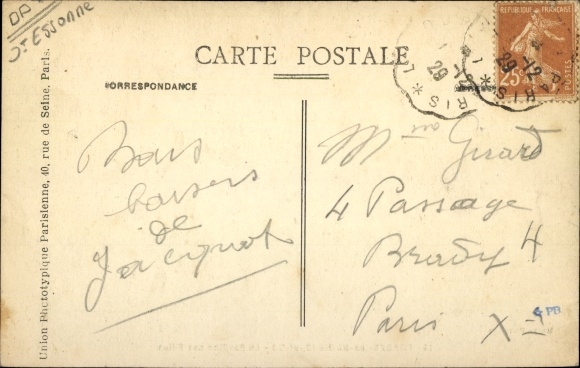 St Essonne
Union Phototypique Parisienne, 40, rue de Seine, Paris.
CARTE POSTALE
CORRESPONDANCE
REPUBLIQUE FRANÇAISE
25c
POSTES
29-12
29-12
PARIS
Bons
baisers
de
Jacquot
Mme Girard
4 Passage
Brady 4
Paris X